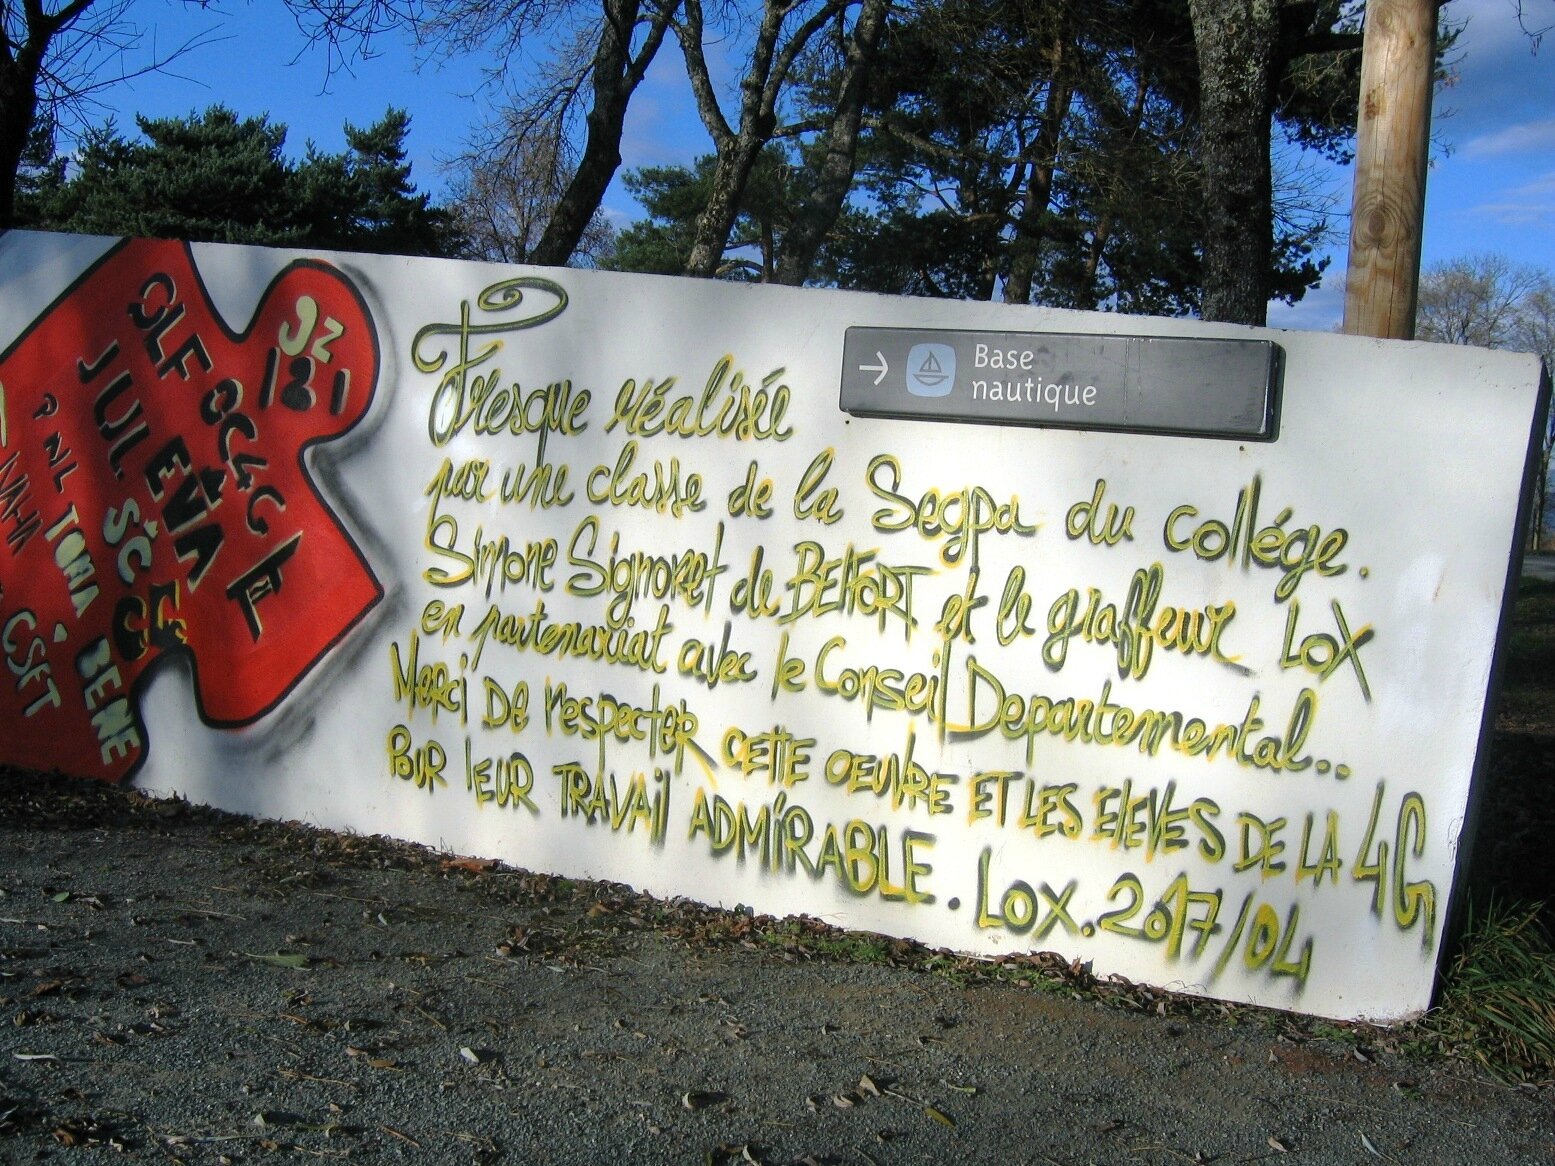 QLF OC4C
JUL EVA
PNL TOMA BENE
CSFT
JZ
181
Fresque réalisée
par une classe de la Segpa du collége.
Simone Signoret de BElFORT et le graffeur LOX
en partenariat avec le Conseil Departemental..
Merci De respecter CETTE OEUVRE ET LES ElEVES DE LA 4G
POUR lEUR TRAVAil ADMiRABLE. LOX. 2017/04
→ Base
nautique